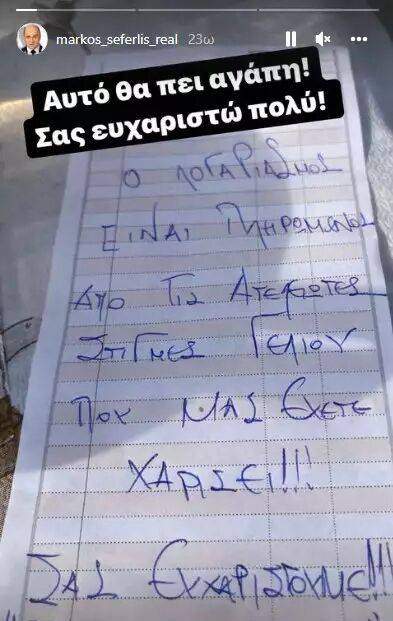 markos_seferlis_real 23ω
Αυτό θα πει αγάπη!
Σας ευχαριστώ πολύ!
Ο ΛΟΓΑΡΙΑΣΜΟΣ
ΕΙΝΑΙ ΠΛΗΡΩΜΕΝΟΣ
ΑΠΟ ΤΙΣ ΑΤΕΛΕΙΩΤΕΣ
ΣΤΙΓΜΕΣ ΓΕΛΙΟΥ
ΠΟΥ ΜΑΣ ΕΧΕΤΕ
ΧΑΡΙΣΕΙ!!!
ΣΑΣ ΕΥΧΑΡΙΣΤΟΥΜΕ!!!